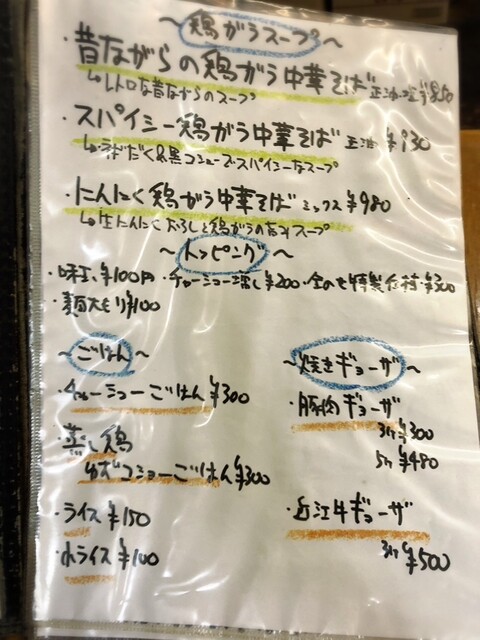 ～鶏がらスープ～
・昔ながらの鶏がら中華そば 正油・塩 ¥850
↳レトロな昔ながらのスープ
・スパイシー鶏がら中華そば 正油 ¥930
黒コショーでスパイシーなスープ
・にんにく鶏がら中華そば ミックス ¥980
↳生にんにくおろしと鶏がらの旨みスープ
～トッピング～
・味玉 ¥100円 ・チャーシュー増し ¥200 ・ ¥300
・麺大もり ¥100
～ごはん～
・チャーシューごはん ¥300
・蒸し鶏
ゆずコショーごはん ¥300
・ライス ¥150
・小ライス ¥100
～焼きギョーザ～
・豚肉ギョーザ
3ケ ¥300
5ケ ¥480
・近江牛ギョーザ
3ケ ¥500